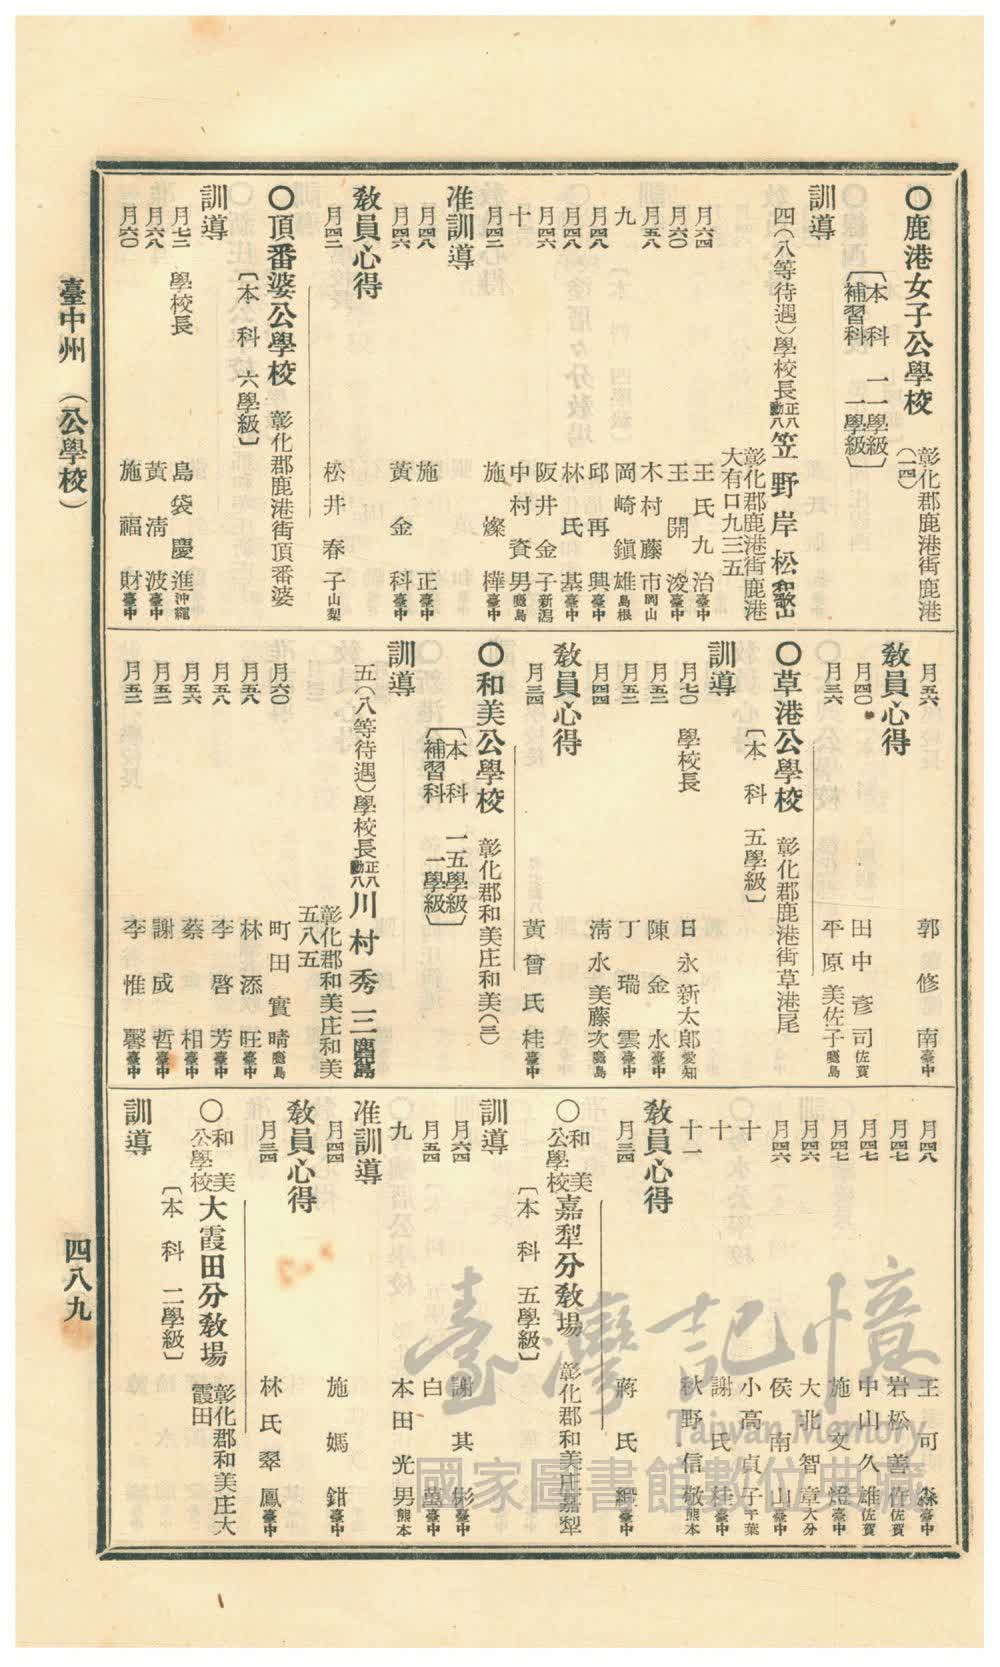 〇鹿港女子公學校
彰化郡鹿港街鹿港
(一四)
〔本科 一一學級〕
〔補習科 一學級〕
訓導
四(八等待遇)學校長 正八勳八 笠野岸松 和歌山
彰化郡鹿港街鹿港
大有口九三五
月六四 王氏九治 臺中
月六〇 王開浚 臺中
月五八 木村藤市 岡山
九 岡崎鎭雄 島根
月四八 邱再興 臺中
月四八 林氏基 臺中
月四六 阪井金子 新潟
十 中村資男 鹿島
月四三 施燦樺 臺中
准訓導
月四八 施正 臺中
月四六 黃金科 臺中
敎員心得
月四三 松井春子 山梨
〇頂番婆公學校 彰化郡鹿港街頂番婆
〔本科 六學級〕
訓導
月七三 學校長 島袋慶進 沖繩
月六八 黃淸波 臺中
月六〇 施福財 臺中
月五六 郭修南 臺中
敎員心得
月四〇 田中彥司 佐賀
月三六 平原美佐子 鹿島
〇草港公學校 彰化郡鹿港街草港尾
〔本科 五學級〕
訓導
月七〇 學校長 日永新太郞 愛知
月五三 陳金水 臺中
月五三 丁瑞雲 臺中
月四四 淸水美藤次 鹿島
敎員心得
月三四 黃曾氏桂 臺中
〇和美公學校 彰化郡和美庄和美(三)
〔本科 一五學級〕
〔補習科 一學級〕
訓導
五(八等待遇)學校長 正八勳八 川村秀三 鹿兒島
彰化郡和美庄和美
五八五
月六〇 町田實晴 鹿島
月五八 林添旺 臺中
月五八 李啓芳 臺中
月五六 蔡相 臺中
月五三 謝成哲 臺中
月五三 李惟馨 臺中
月四八 王可森 臺中
月四七 岩松善作 佐賀
月四七 中山久雄 佐賀
月四七 施文燈 臺中
月四六 大北智章 大分
月四六 侯南山 臺中
十 小高貞子 千葉
十 謝氏桂 臺中
十一 秋野信敬 熊本
敎員心得
月三四 蔣氏緞 臺中
〇和美公學校 嘉犁分敎場 彰化郡和美庄嘉犁
〔本科 五學級〕
訓導
月六四 謝其彬 臺中
月五四 白 臺中
九 本田光男 熊本
准訓導
月四四 施媽鉗 臺中
敎員心得
月三四 林氏翠鳳 臺中
〇和美公學校 大霞田分敎場 彰化郡和美庄大
霞田
〔本科 二學級〕
訓導
臺中州 (公學校)
四八九
臺灣記憶
Taiwan Memory
國家圖書館數位典藏